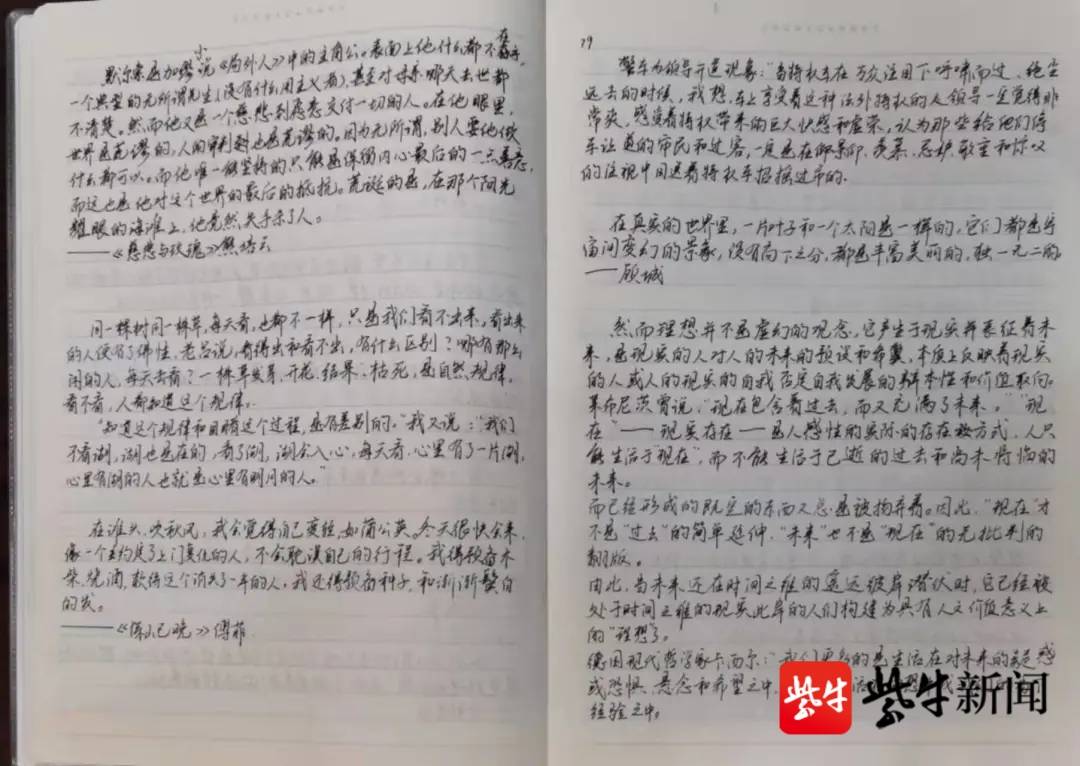 默尔索是加缪小说《局外人》中的主角公。表面上他什么都不在乎,
一个典型的无所谓先生(没有什么用主义者),甚至对母亲哪天去世都
不清楚。然而他又是一个慈悲到愿意交付一切的人。在他眼里,
世界是荒谬的,人的审判也是荒谬的。因为无所谓,别人要他做
什么都可以。而他唯一能坚持的只能是保留内心最后的一点善意,
而这也是他对这个世界的最后的抵抗。荒诞的是,在那个阳光
耀眼的海滩上,他竟然失手杀了人。
——《慈悲与玫瑰》熊培云
同一棵树同一棵草,每天看,也都不一样,只是我们看不出来。看出来
的人便有了佛性。老吕说,看得出和看不出,有什么区别?哪有那么
闲的人,每天去看?一棵草发芽、开花、结果、枯死,是自然规律,
看不看,人都知道这个规律。
“知道这个规律和目睹这个过程,是有差别的。”我又说:“我们
不看湖,湖也是在的,看了湖,湖会入心,每天看,心里有了一片湖,
心里有湖的人也就是心里有明月的人。”
在滩头,吹秋风,我会觉得自己变轻,如蒲公英。冬天很快会来,
像一个去约定了上门复仇的人,不会耽误自己的行程。我得预备木
柴,烧酒,款待这个消失了一年的人,我还得预备种子,和渐渐鬓白
的发。
——《深山已晚》傅菲
19
警车为领导开道现象:“当特权车在万众注目下呼啸而过、绝尘
远去的时候,我想,车上享受着这种法外特权的人领导一定觉得非
常爽,感受着特权带来的巨大快感和虚荣,认为那些给他们停
车让道的市民和过客,一定是在仰慕仰、羡慕、忌妒、敬重和惊叹
的注视中目送着特权车招摇过市的。
在真实的世界里,一片叶子和一个太阳是一样的,它们都是宇
宙间变幻的景象,没有高下之分,都是丰富美丽的,独一无二的。
——顾城
然而理想并不是虚幻的观念,它产生于现实并表征着未
来,是现实的人对人的未来的预设和希冀,本质上反映着现实
的人或人的现实的自我否定自我发展的超本性和价值取向。
莱布尼茨曾说,“现在包含着过去,而又充满了未来。”“现
在”——现实存在——是人感性的实际的存在方式,人只
能生活于“现在”,而不能生活于已逝的过去和尚未将临的
未来。
而已经形成的既定的东西又总是被扬弃着。因此,“现在”才
不是“过去”的简单延伸,“未来”也不是“现在”的无批判的
翻版。
由此,当未来还在时间之维的遥远彼岸潜伏时,它已经被
处于时间之维的现实此岸的人们构建为具有人文价值意义上
的“理想”了。
德国现代哲学家卡西尔:“我们更多的是生活在对未来的疑惑
或恐惧、悬念和希望之中,
经验之中。
紫牛
紫牛新闻